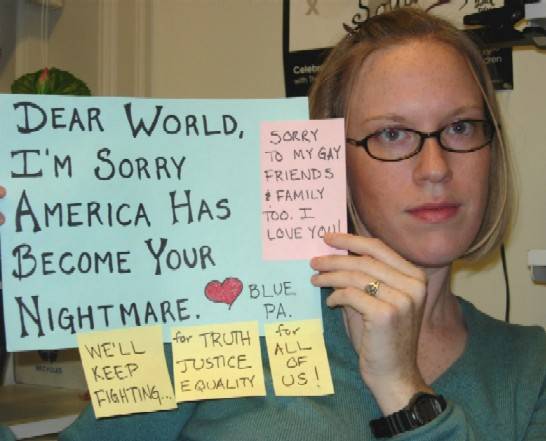 DEAR WORLD,
I'M SORRY
AMERICA HAS
BECOME YOUR
NIGHTMARE.
BLUE
PA.
SORRY
TO MY GAY
FRIENDS
& FAMILY
TOO. I
LOVE YOU!
WE'LL
KEEP
FIGHTING...
for TRUTH
JUSTICE
EQUALITY
for
ALL
OF
US!